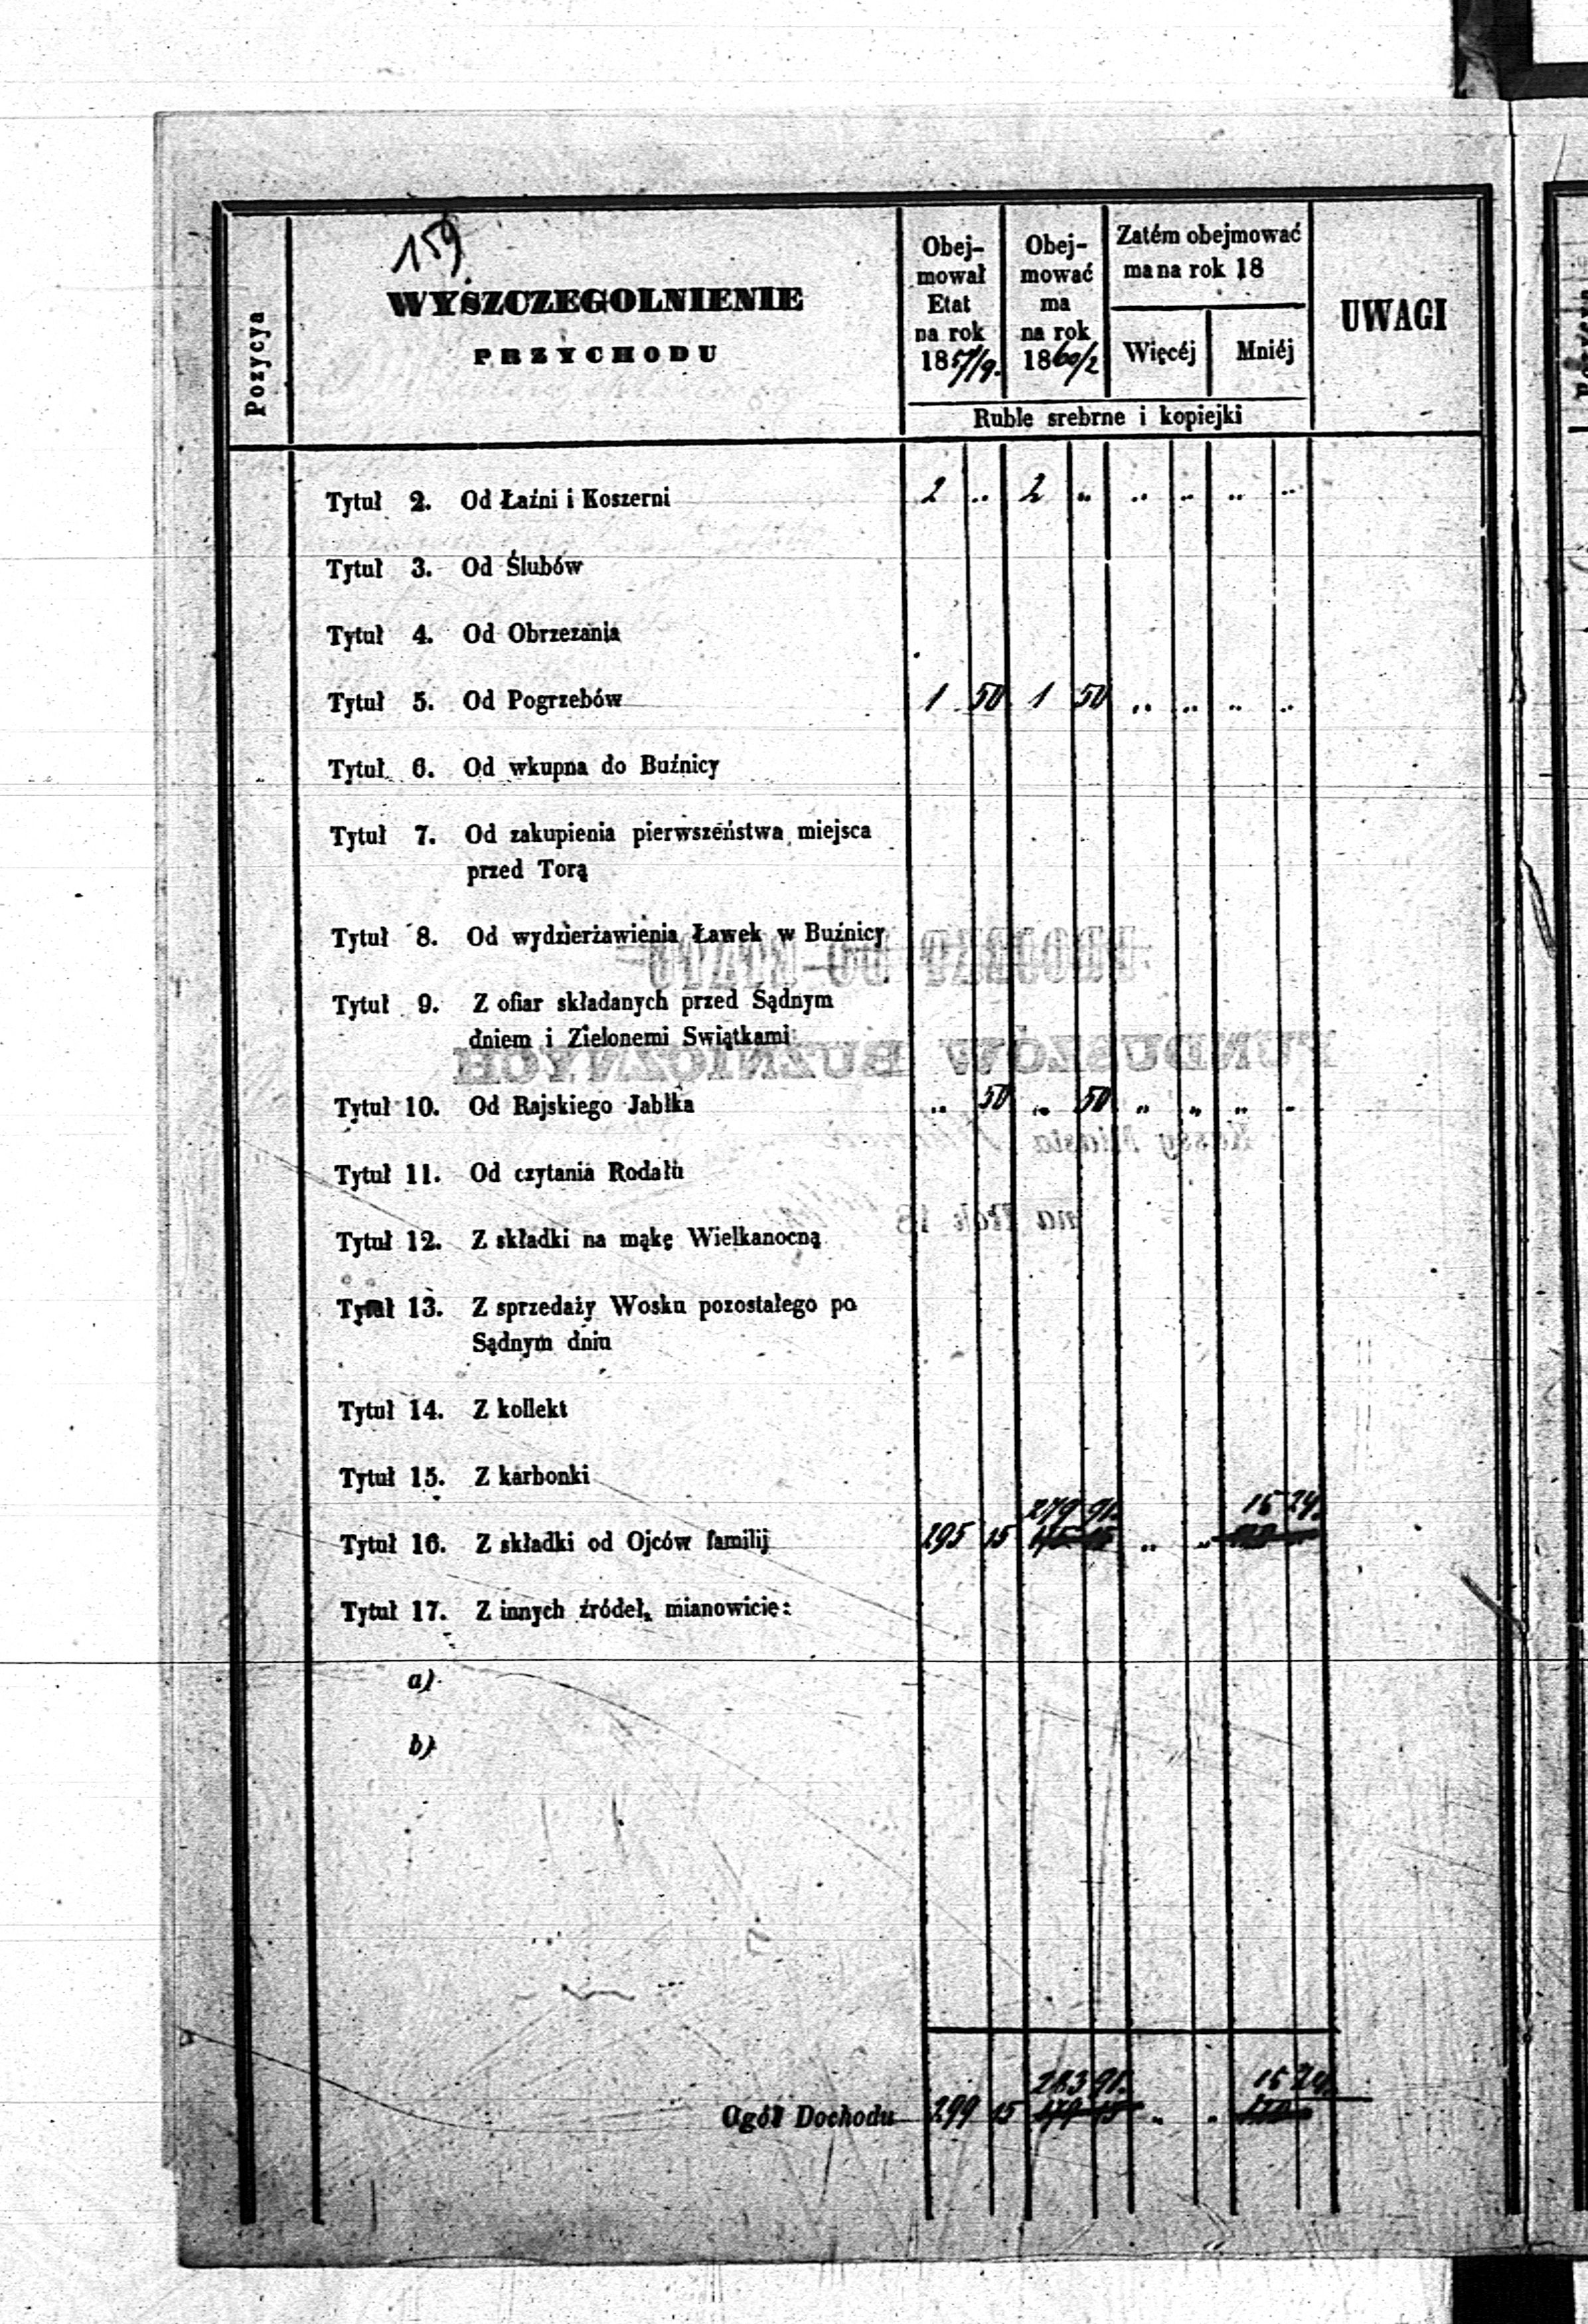 159
WYSZCZEGOLNIENIE
PRZYCHODU
Pozycya
Obej-
mował
Etat
na rok
1857/9.
Obej-
mować
ma
na rok
1860/2
Zatém obejmować
ma na rok 18
Więcéj Mniéj
UWAGI
Ruble srebrne i kopiejki
Tytuł 2. Od Łaźni i Koszerni 2 „ 2 „ „ „ „ „
Tytuł 3. Od Ślubów
Tytuł 4. Od Obrzezania
Tytuł 5. Od Pogrzebów 1 50 1 50 „ „ „ „
Tytuł 6. Od wkupna do Buźnicy
Tytuł 7. Od zakupienia pierwszeństwa miejsca
przed Torą
Tytuł 8. Od wydzierżawienia Ławek w Buźnicy
Tytuł 9. Z ofiar składanych przed Sądnym
dniem i Zielonemi Swiątkami
Tytuł 10. Od Rajskiego Jabłka „ 50 „ 50 „ „ „ „
Tytuł 11. Od czytania Rodału
Tytuł 12. Z składki na mąkę Wielkanocną
Tytuł 13. Z sprzedaży Wosku pozostałego po
Sądnym dniu
Tytuł 14. Z kollekt
Tytuł 15. Z karbonki
279 91. 15 24.
Tytuł 16. Z składki od Ojców familij 295 15 „ „
Tytuł 17. Z innych źródeł, mianowicie:
a)
b)
283 91. 15 24.
Ogół Dochodu 299 15 „ „